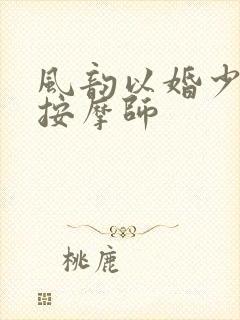 風韵以婚少
按摩師
桃鹿